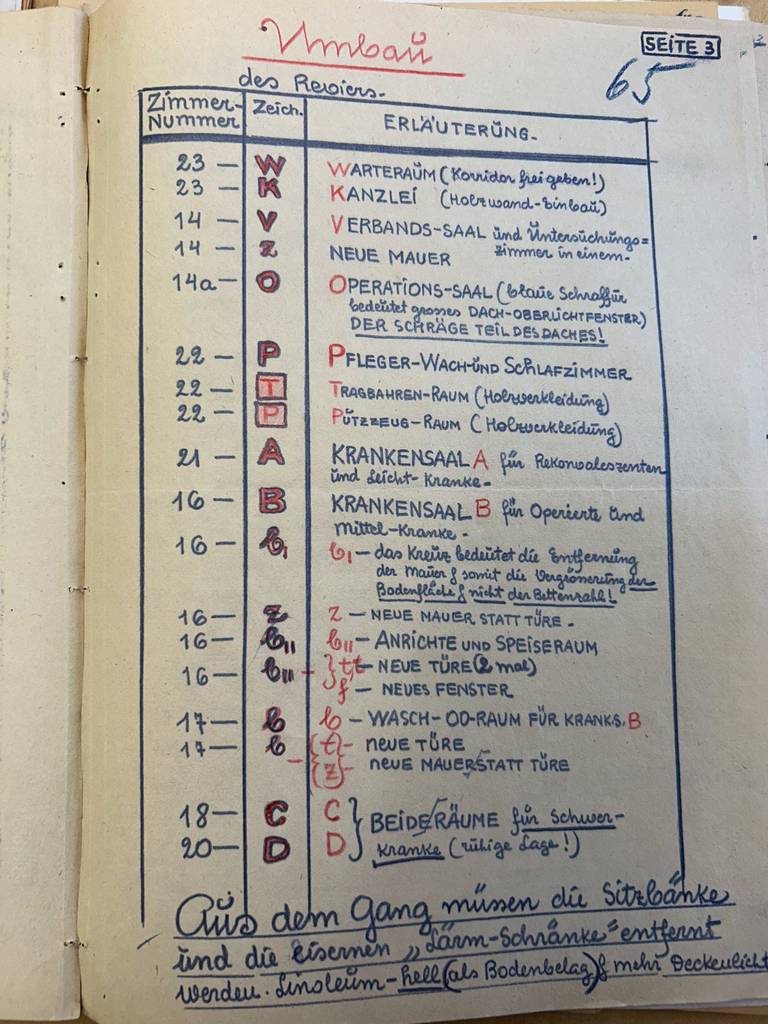 Umbau
SEITE 3
65
des Reviers.
Zimmer-Nummer Zeich. ERLÄUTERUNG.
23 — W WARTERAUM (Korridor frei geben!)
23 — K KANZLEI (Holzwand-Einbau)
14 — V VERBANDS-SAAL und Untersuchungs=
zimmer in einem.
14 — Z NEUE MAUER
14a — O OPERATIONS-SAAL (blaue Schraffur
bedeutet grosses DACH-OBERLICHTFENSTER)
DER SCHRÄGE TEIL DES DACHES!
22 — P PFLEGER-WACH-UND SCHLAFZIMMER
22 — T TRAGBAHREN-RAUM (Holzverkleidung)
22 — P PUTZZEUG-RAUM (Holzverkleidung)
21 — A KRANKENSAAL A für Rekonvaleszenten
und Leicht-Kranke.
16 — B KRANKENSAAL B für Operierte und
Mittel-Kranke.
16 — b₁ b₁ — das Kreuz bedeutet die Entfernung
der Mauer & somit die Vergrösserung der
Bodenfläche & nicht der Bettenzahl!
16 — Z Z — NEUE MAUER STATT TÜRE.
16 — b₁₁ b₁₁ — ANRICHTE UND SPEISERAUM
16 — b₁₁₁ — } tt — NEUE TÜRE (2 mal)
f — NEUES FENSTER
17 — b b — WASCH-OD-RAUM FÜR KRANKS. B
17 — b (t) — NEUE TÜRE
— (z) — NEUE MAUER STATT TÜRE
18 — C C } BEIDE RÄUME für Schwer-
20 — D D } Kranke (ruhige Lage!)
Aus dem Gang müssen die Sitzbänke
und die eisernen „Lärm-Schränke" entfernt
werden. Linoleum-hell (als Bodenbelag) & mehr Deckenlicht